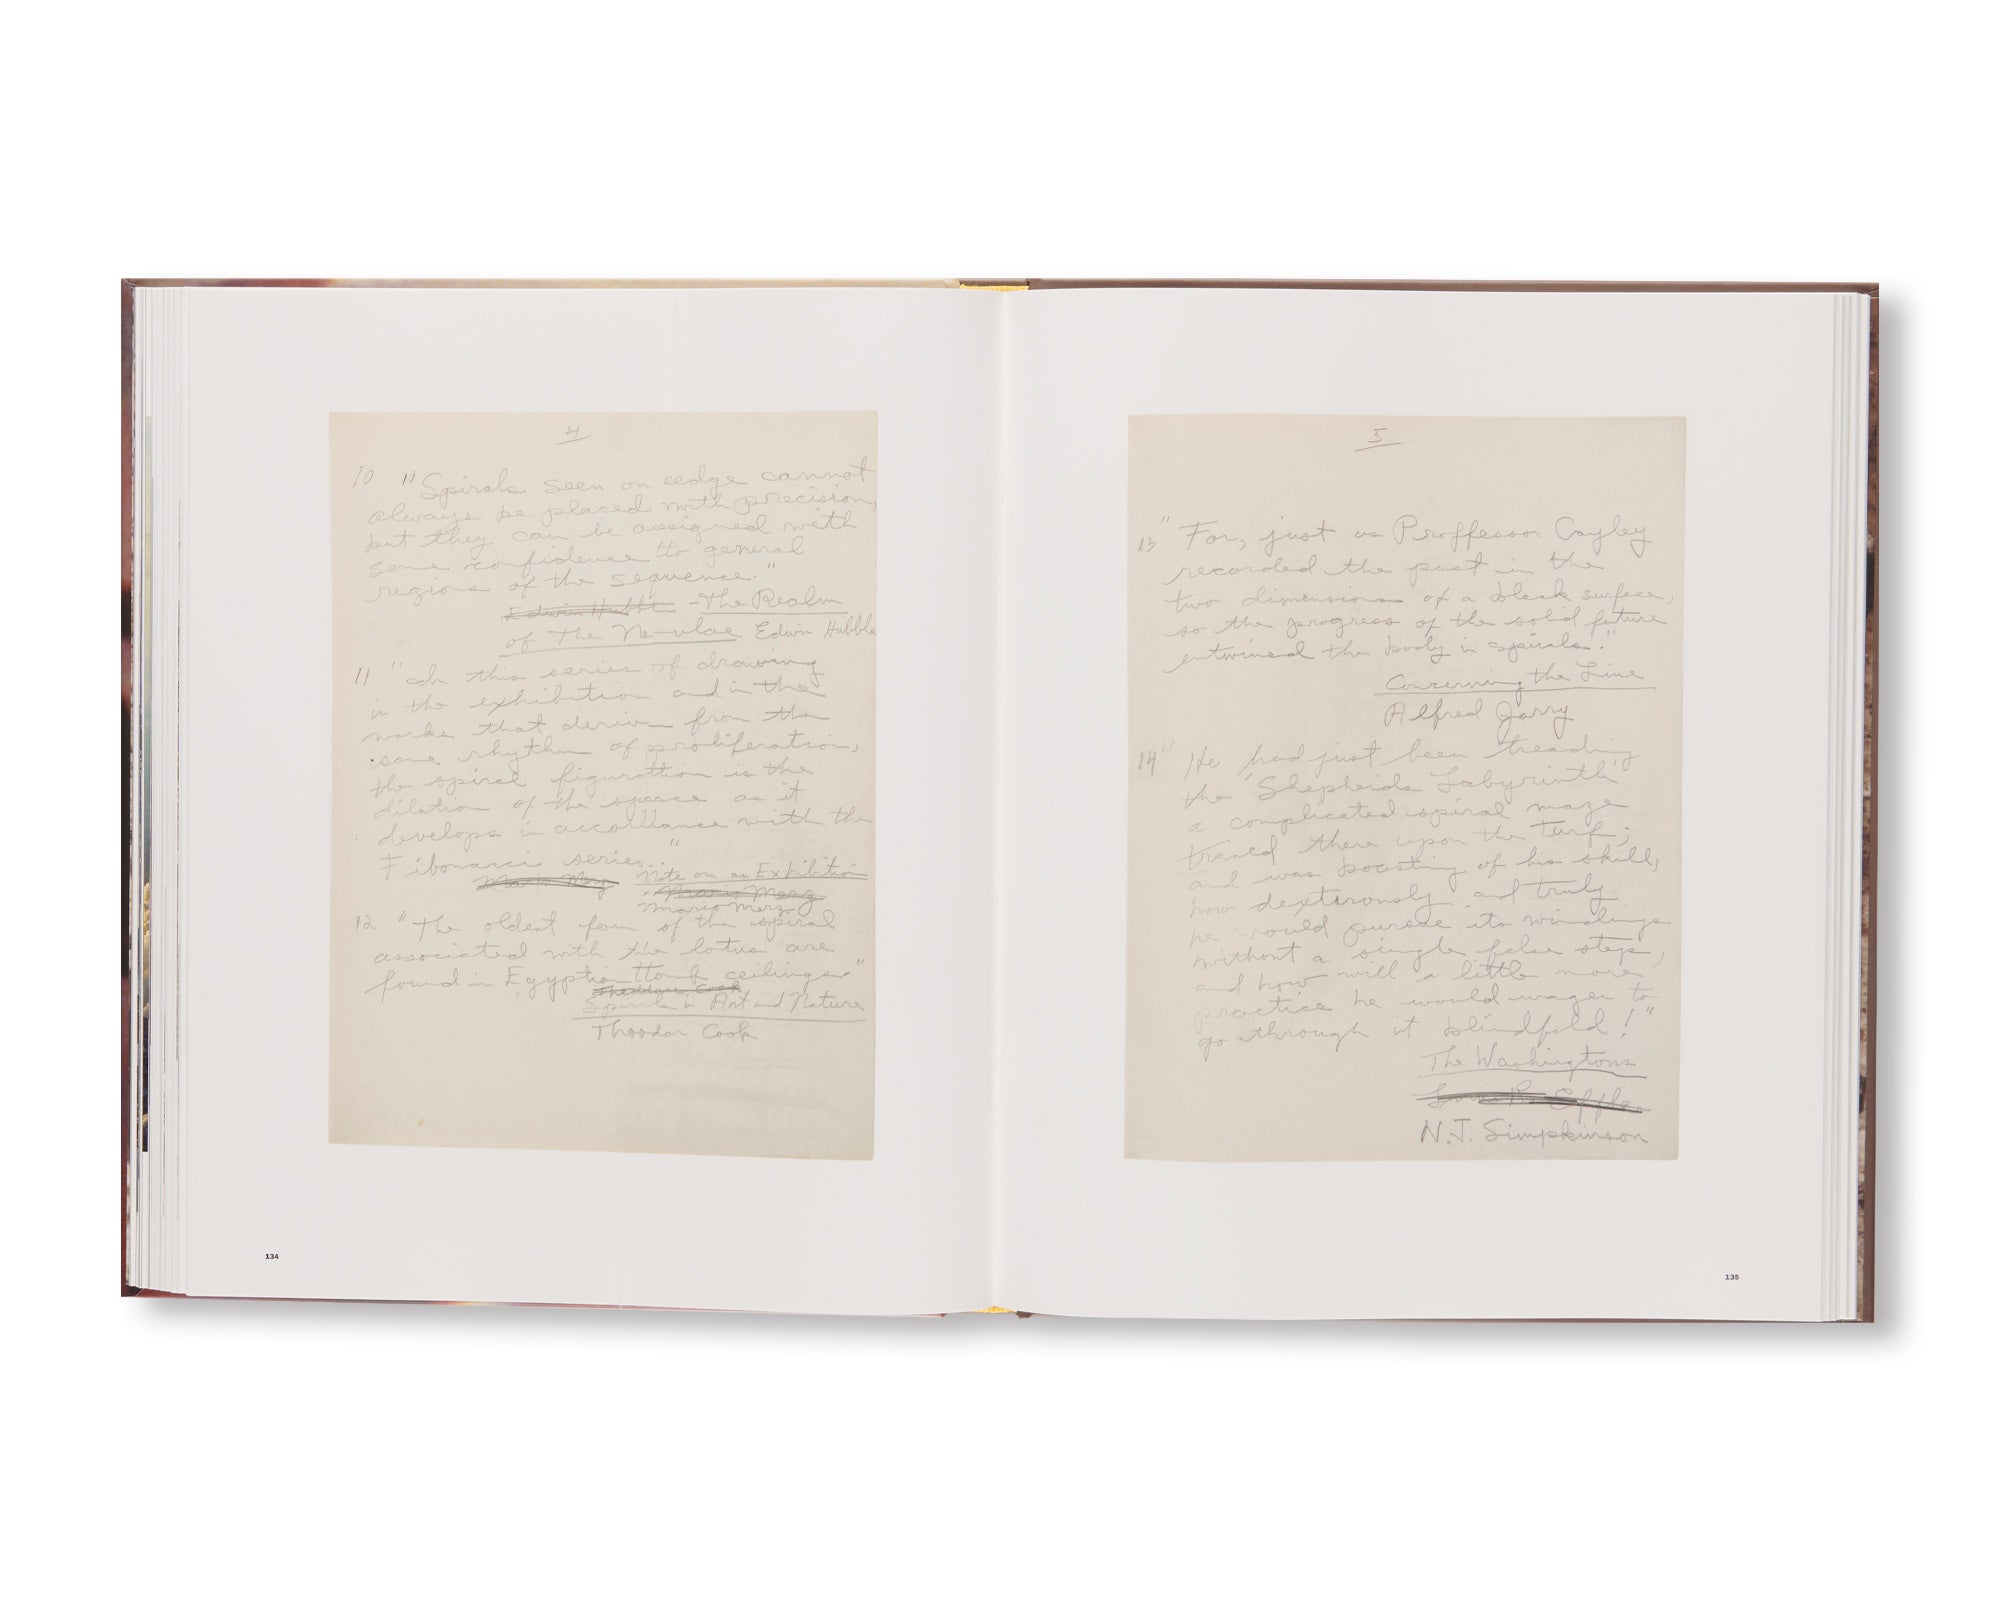 4
10 "Spirals seen on eedge cannot
always be placed with precision,
but they can be assigned with
some confidence tto general
regions of the sequence."
Edwin Hubble - The Realm
of the Ne-ulae Edwin Hubble
11 "In this series of drawing
in the exhibition and in the
works that derive from the
same rhythm of pproliferation,
the spiral figurattion is the
dilation of the space as it
develops in accordance with the
Fibonacci series..."
Mario Merz Note on an Exhibition
Mario Merz
Mario Merz
12. "The oldest form of the spiral
associated with the lotus are
found in Egyptian ttomb ceilings."
Theodore Cook
Spirals in Art and Nature
Theodor Cook
134
5
13 "For, just as Proffessor Cayley
recorded the past in the
two dimensions of a black surface,
so the progress of the solid future
entwined the body in spirals."
Concerning the Line
Alfred Jarry
14 "He had just been treading
the 'Shepheids Labyrinth'
a complicated spiral maze
traced there upon the turf;
and was boasting of his skill,
how dexterously and truly
he would pursue its windings
without a single false step,
and how will a little more
practice he would wager to
go through it blindfold!"
The Washingtons
N.J. Simpkinson
135